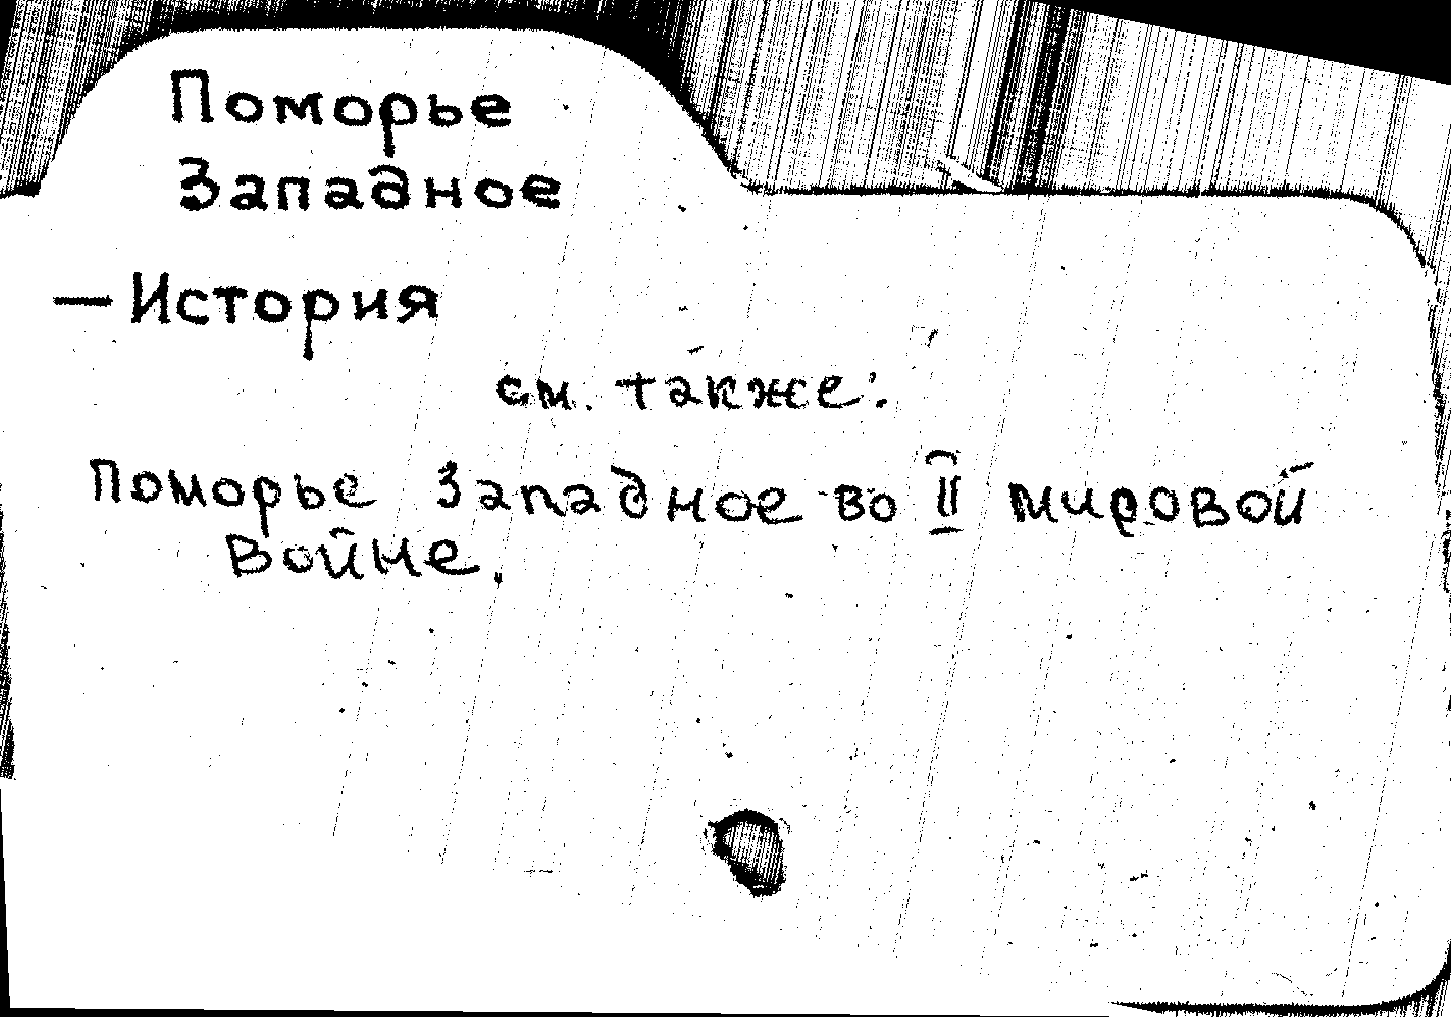 Поморье
Западное
— История
см. также:
Поморье Западное во II мировой
войне.